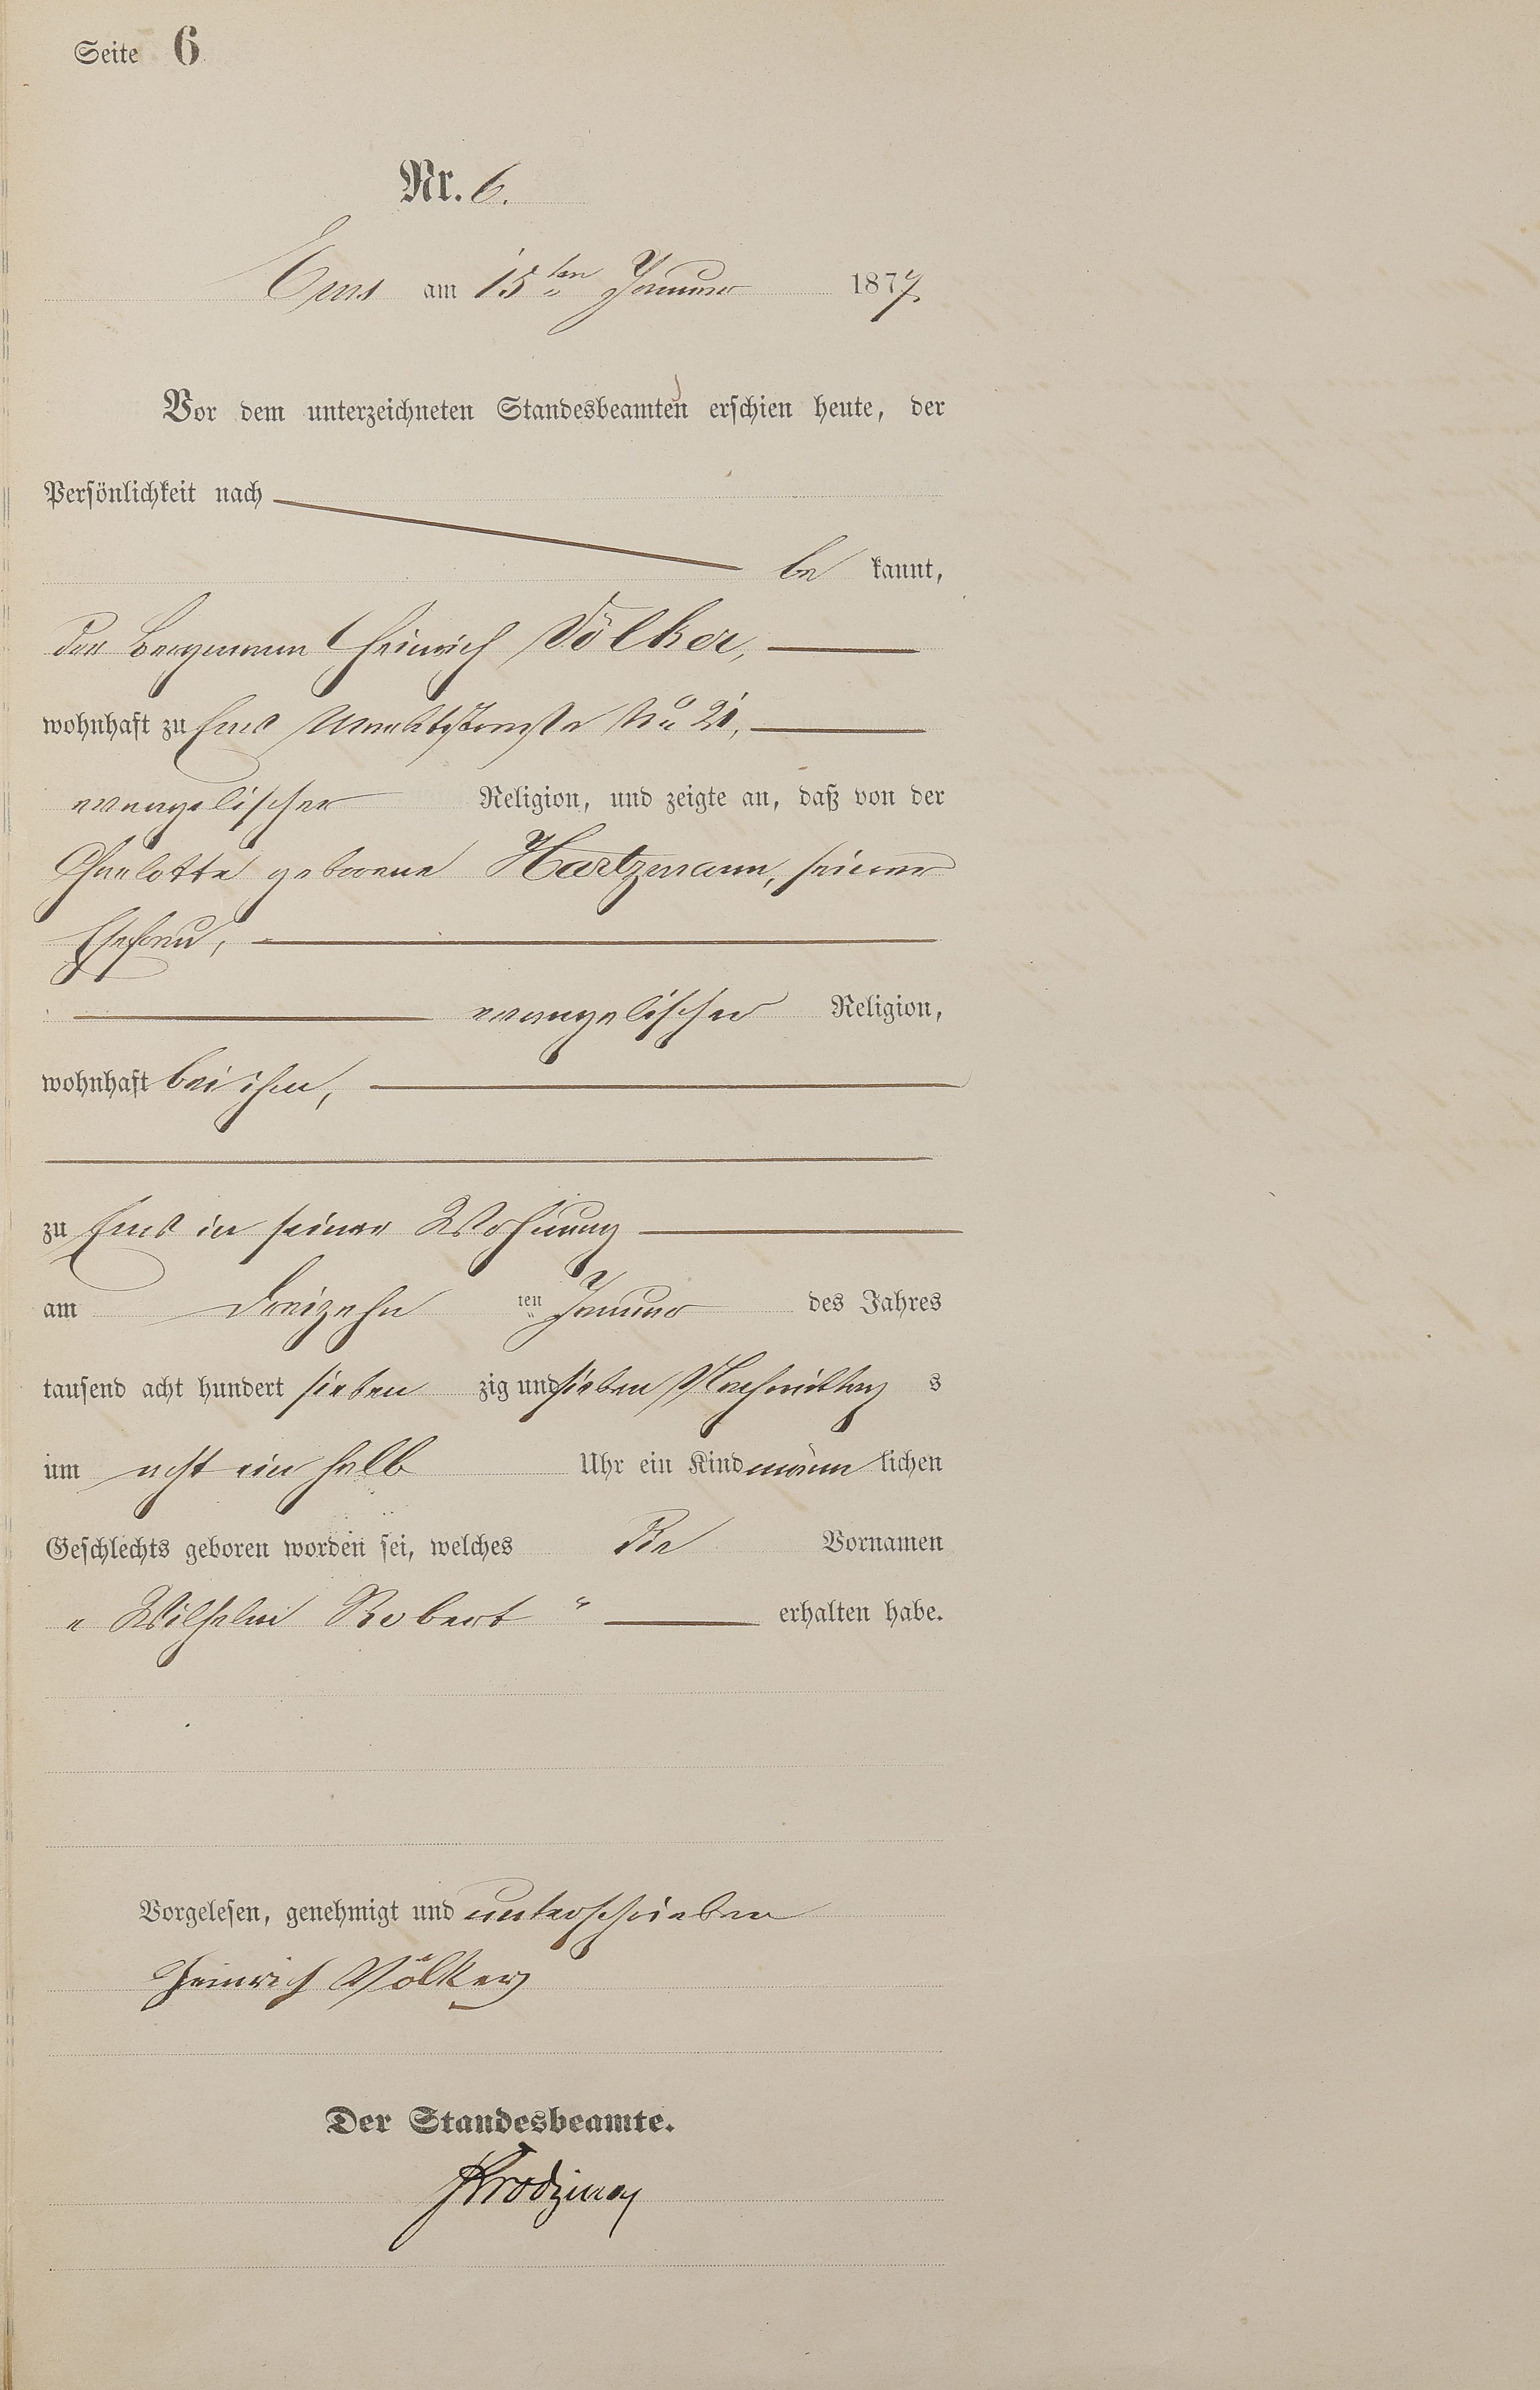 Seite 6
Nr. 6.
Ems am 15ten Januar 1877.
Vor dem unterzeichneten Standesbeamten erschien heute, der
Persönlichkeit nach
be kannt,
der Bergmann Heinrich Völker,
wohnhaft zu Ems Marktstraße No 21,
evangelischer Religion, und zeigte an, daß von der
Charlotte geborene Hartzmann, seiner
Ehefrau,
evangelischer Religion,
wohnhaft bei ihm,
zu Ems in seiner Wohnung
am dreizehn ten Januar des Jahres
tausend acht hundert sieben zig und sieben Nachmittag s
um acht ein halb Uhr ein Kind männ lichen
Geschlechts geboren worden sei, welches die Vornamen
„ Wilhelm Robert “ erhalten habe.
Vorgelesen, genehmigt und unterschrieben
Heinrich Völker
Der Standesbeamte.